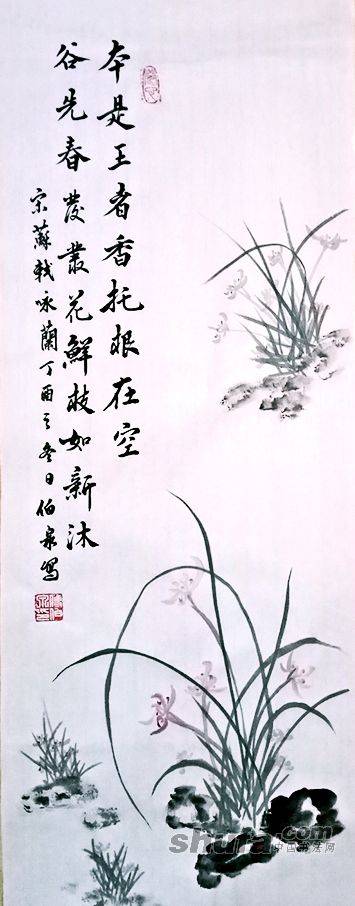 本是王者香托根在空
谷先春發叢花鮮枝如新沐
宋蘇軾咏蘭丁酉之冬日伯泉寫
shufa.com
中国书法网